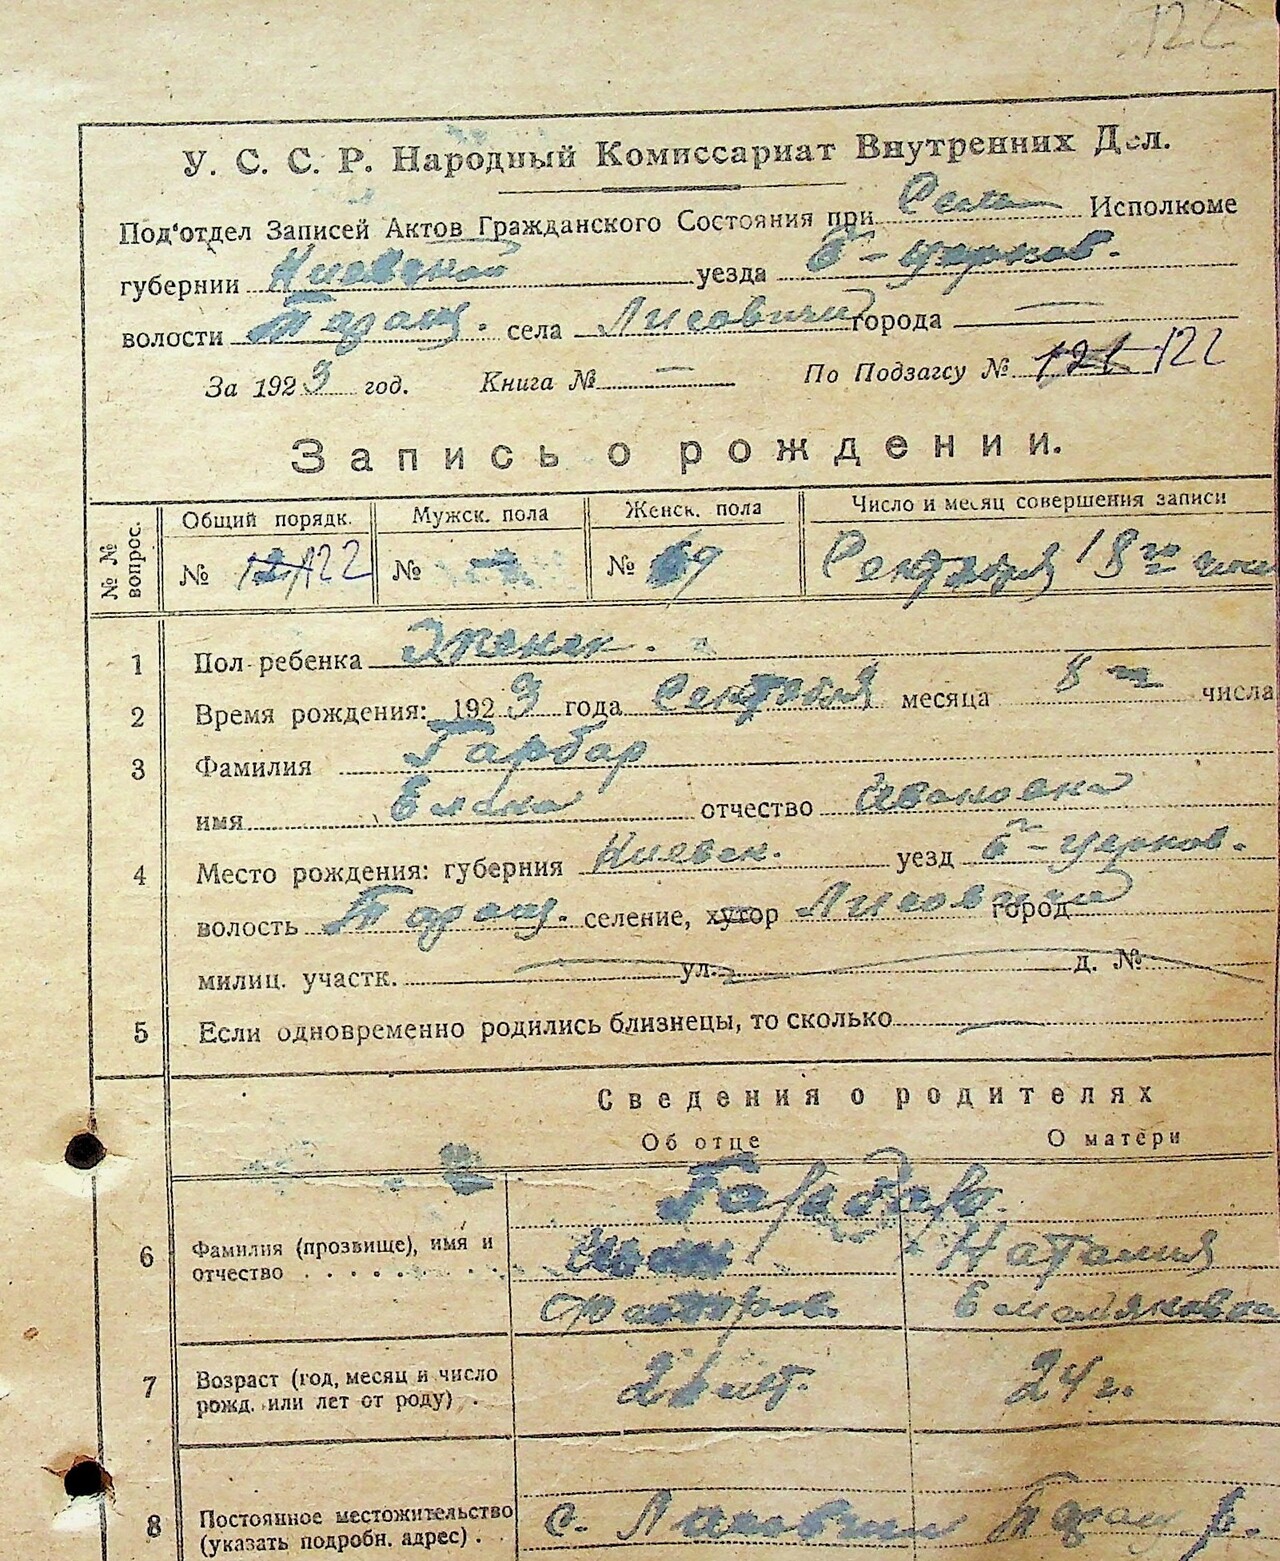 122
У. С. С. Р. Народный Комиссариат Внутренних Дел.
Под'отдел Записей Актов Гражданского Состояния при Сель Исполкоме
губернии Киевской уезда Б-Церков.
волости Таращ. села Лисовичи города —
За 1923 год. Книга № — По Подзагсу № 122
Запись о рождении.
№ № вопрос. Общий порядк. Мужск. пола Женск. пола Число и месяц совершения записи
№ 122 № — № 69 Сентября 18го числа
1 Пол ребенка Женск.
2 Время рождения: 1923 года Сентября месяца 8го числа
3 Фамилия Гарбар
имя Елена отчество Ивановна
4 Место рождения: губерния Киевск. уезд Б-Церков.
волость Таращ. селение, хутор Лисовичи город
милиц. участк. ул. д. №
5 Если одновременно родились близнецы, то сколько —
Сведения о родителях
Об отце О матери
Гарбар
6 Фамилия (прозвище), имя и Иван Наталия
отчество . . . . . . . . Емельяновна
7 Возраст (год, месяц и число лет. 24 г.
рожд. или лет от роду) .
8 Постоянное местожительство с. Лисовичи Таращ. р.
(указать подробн. адрес) .